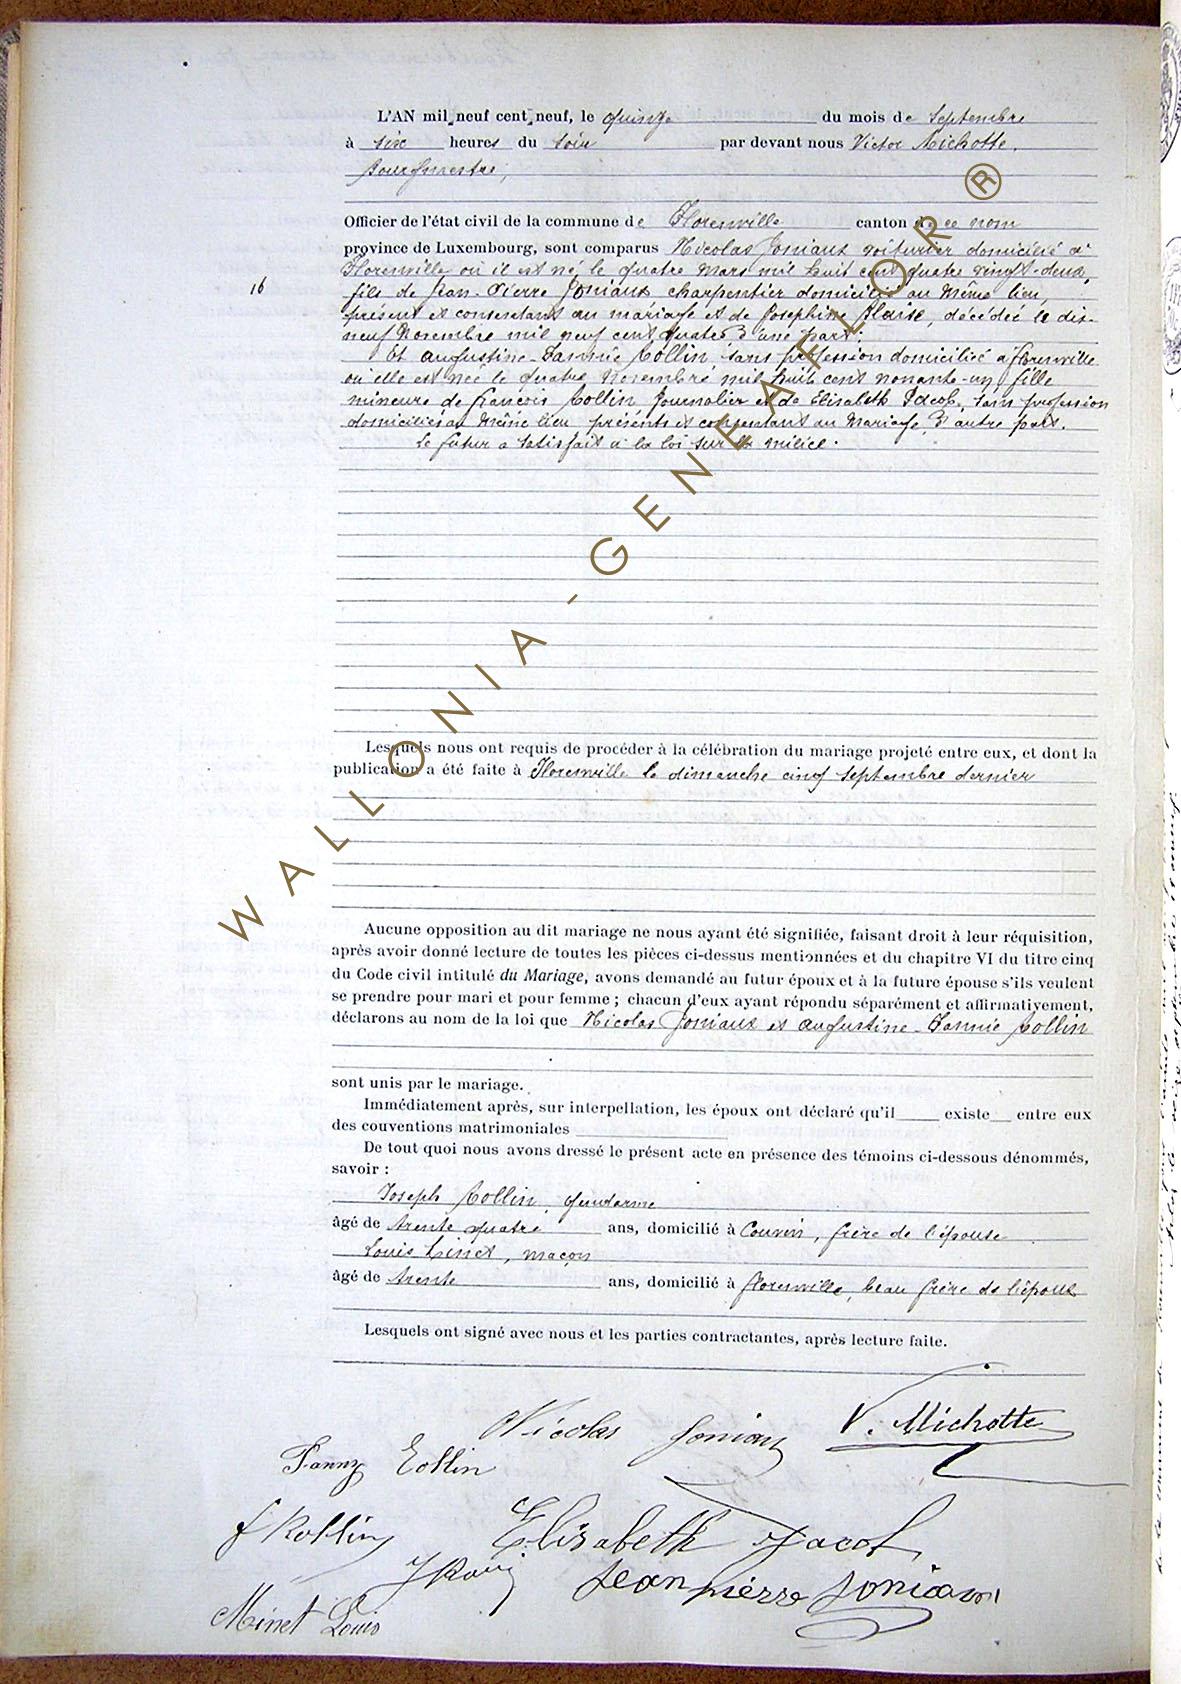 L'AN mil neuf cent neuf, le quinze du mois de Septembre
à six heures du soir par devant nous Victor Michotte,
Bourgmestre,
Officier de l'état civil de la commune de Florenville canton de ce nom
province de Luxembourg, sont comparus Nicolas Joniaux voiturier domicilié à
Florenville où il est né le quatre Mars mil huit cent quatre vingt-deux,
16
fils de Jean-Pierre Joniaux charpentier domicilié au Même lieu,
présent et consentant au mariage et de Joséphine décédée le dix-
neuf Novembre mil neuf cent quatre d'une part.
Et Augustine-Fannie Collin sans profession domiciliée à Florenville
où elle est née le quatre Novembre mil huit cent nonante-un, fille
mineure de François Collin, Journalier et de Elisabeth Jacob, sans profession
domiciliés au Même lieu présents et consentant au Mariage, d'autre part.
Le futur a satisfait à la loi sur la milice.
Lesquels nous ont requis de procéder à la célébration du mariage projeté entre eux, et dont la
publication a été faite à Florenville le dimanche cinq septembre dernier
Aucune opposition au dit mariage ne nous ayant été signifiée, faisant droit à leur réquisition,
après avoir donné lecture de toutes les pièces ci-dessus mentionnées et du chapitre VI du titre cinq
du Code civil intitulé du Mariage, avons demandé au futur époux et à la future épouse s'ils veulent
se prendre pour mari et pour femme ; chacun d'eux ayant répondu séparément et affirmativement,
déclarons au nom de la loi que Nicolas Joniaux et Augustine-Fannie Collin
sont unis par le mariage.
Immédiatement après, sur interpellation, les époux ont déclaré qu'il existe entre eux
des conventions matrimoniales
De tout quoi nous avons dressé le présent acte en présence des témoins ci-dessous dénommés,
savoir :
Joseph Collin, gendarme
âgé de trente quatre ans, domicilié à Couvin, frère de l'épouse
Louis Minet, maçon
âgé de trente ans, domicilié à Florenville, beau frère de l'époux
Lesquels ont signé avec nous et les parties contractantes, après lecture faite.
Nicolas Joniaux V. Michotte
Fanny Collin
f Kollin Elisabeth Jacob
Jean pierre Joniaux
Minet Louis
WALLONIA-GENEAFLOR ®